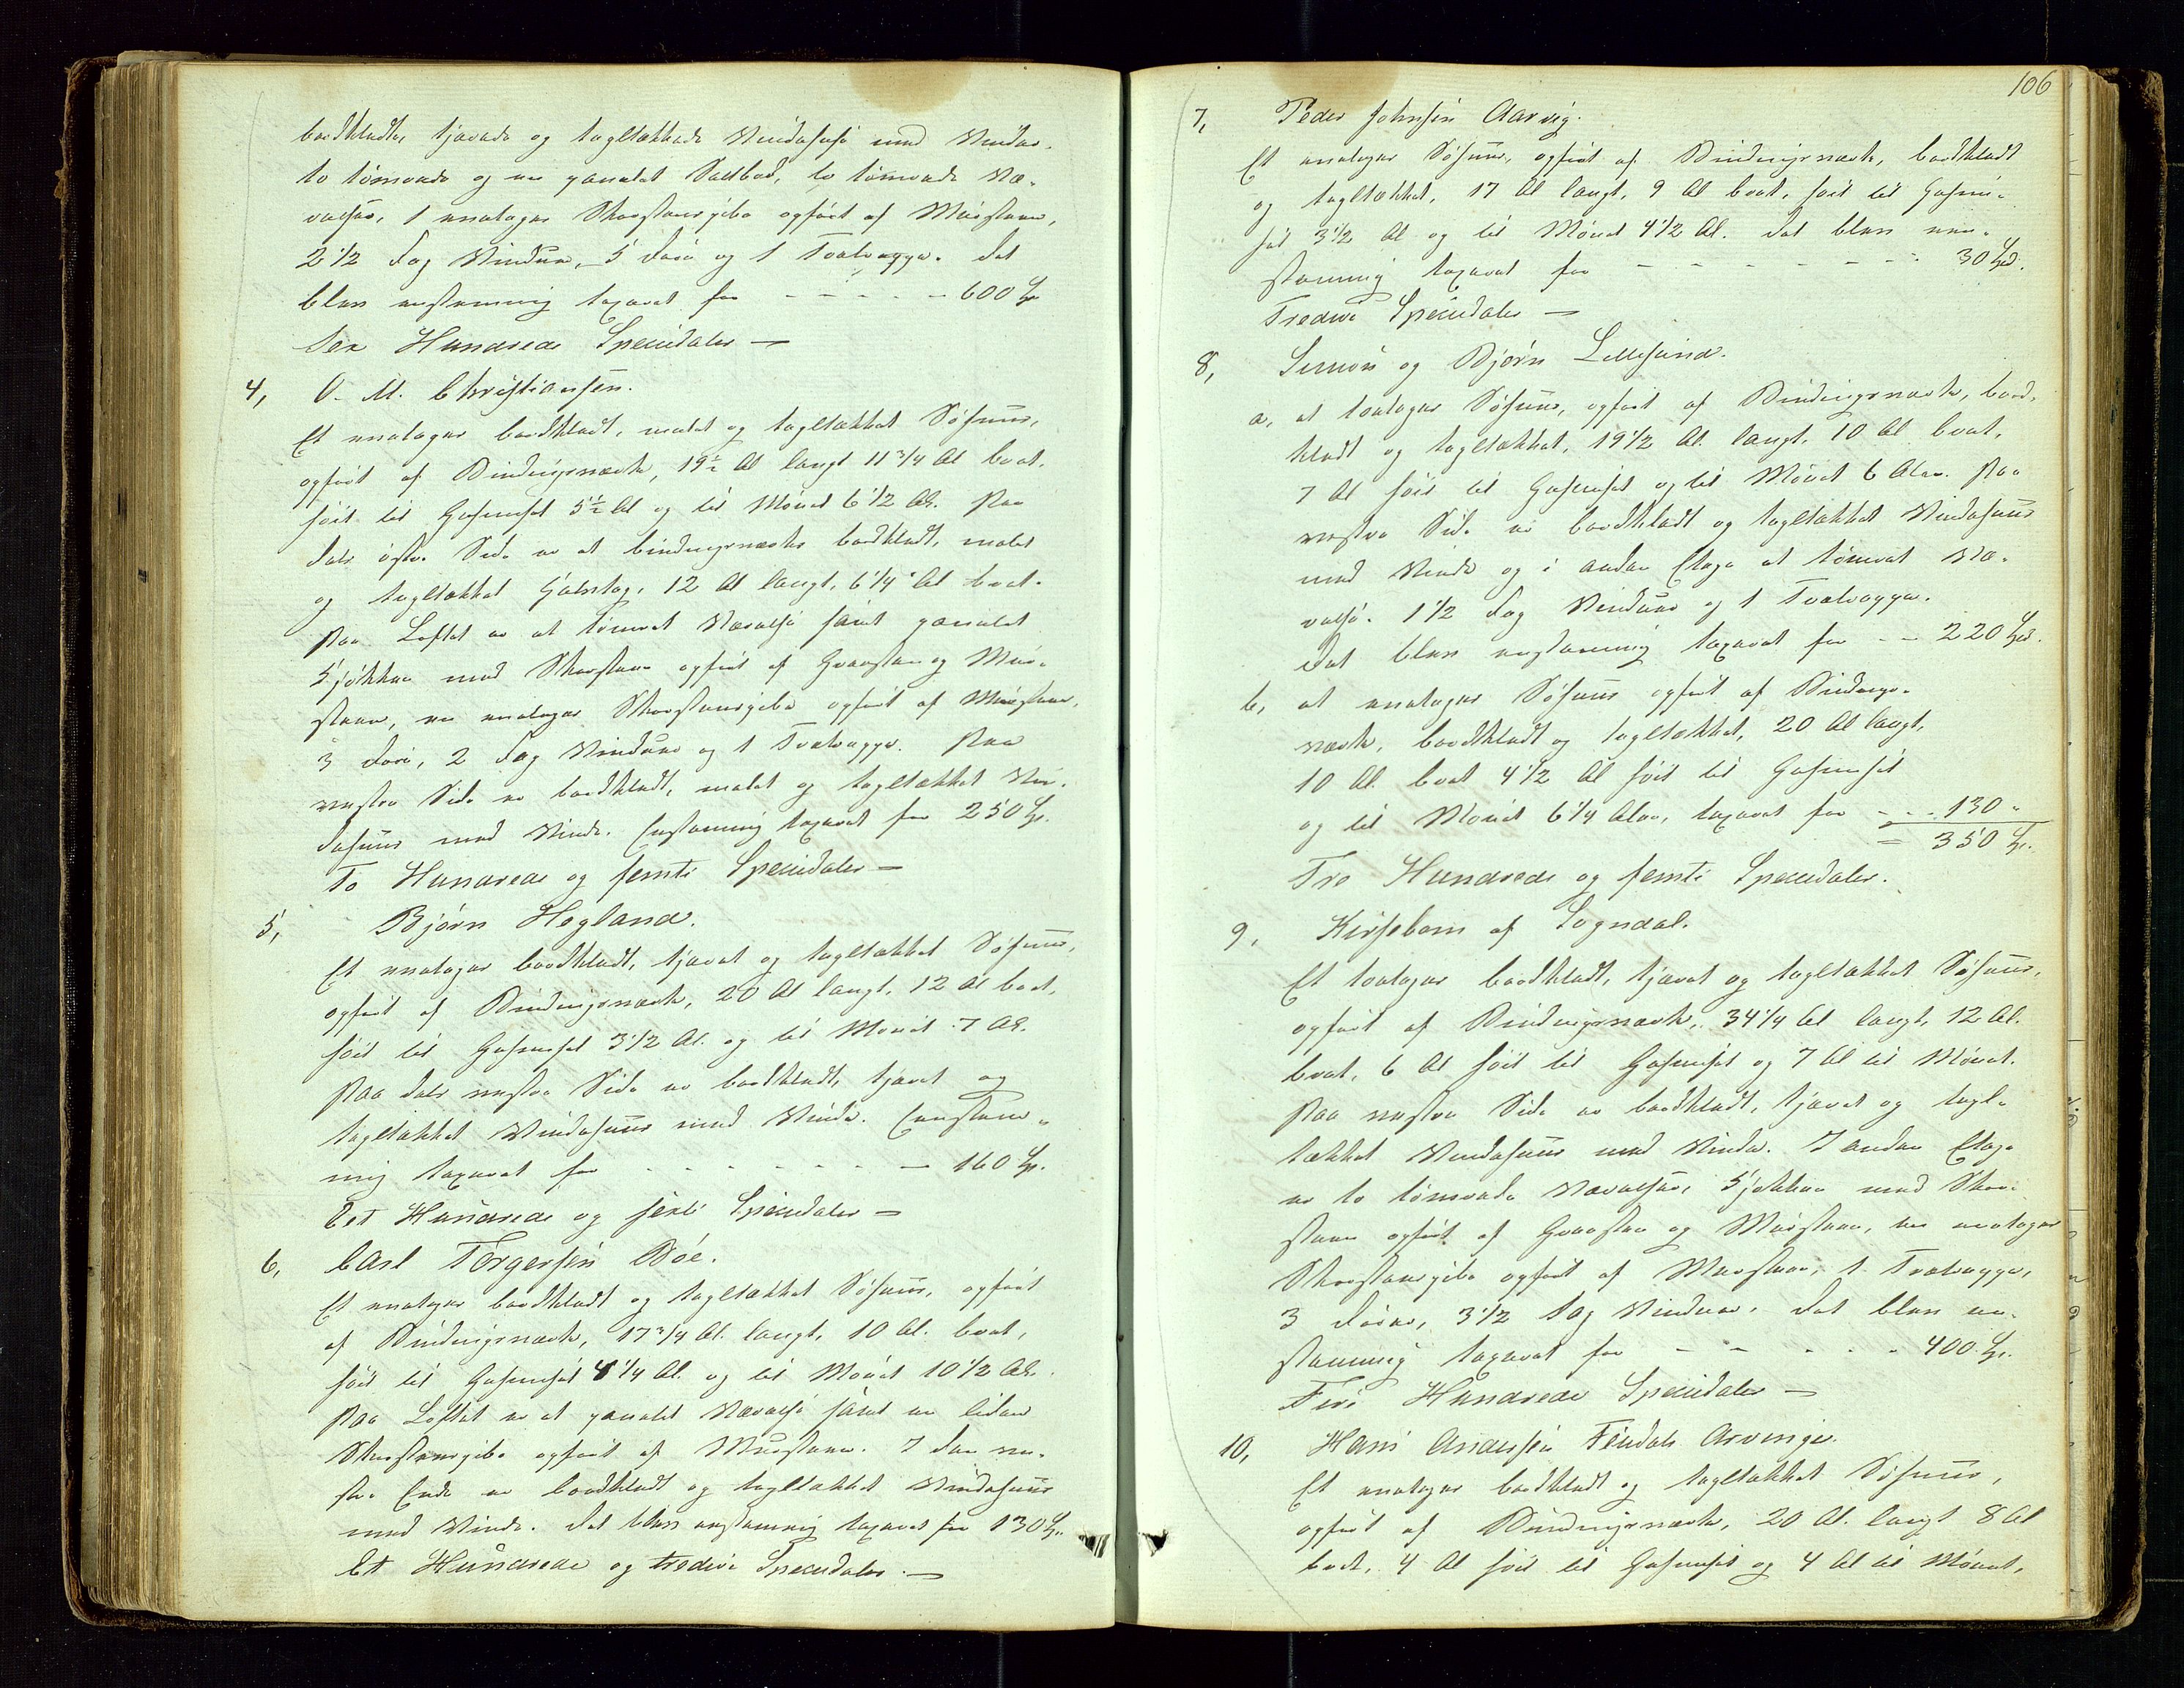 bordklædte, tjærede og tagltækkede Vindehuse med Vinder,
to tømrede og en panelet Saltbod, to tømrede Væ-
relser, 1 enetages Skorstenspibe opført af Mursteen,
2 1/2 Fag Vinduer, 5 Døre og 1 Tvalrappe. Det
blev enstemmig taxeret for - - - - - 600 Spd
Sex Hundrede Speciedaler —
4, O. M. Christiansen.
Et enetages bordklædt, malet og tagltækket Søhuus,
opført af Bindingsværk, 19 1/2 Al langt 11 3/4 Al bredt,
høit til Gesimset 5 1/2 Al og til Mønet 6 1/2 Al. Paa
dets østre Side er et bindingsværks bordklædt, malet
og tagltækket, 12 Al langt, 6 1/4 Al bredt.
Paa Loftet er et tømret Værelse samt panelet
Kjøkken med Skorsten opført af Graasten og Mur-
steen, en enetages Skorstenspibe opført af Mursteen,
3 Døre, 2 Fag Vinduer og 1 Tvalrappe. Paa
vestre Side er bordklædt, malet og tagltækket Vin-
dehuus med Vinde. Enstemmig taxeret for 250 Sp.
To Hundrede og femti Speciedaler —
5, Bjørn Hogland.
Et enetages bordklædt, tjæret og tagltækket Søhuus,
opført af Bindingsværk, 20 Al langt, 12 Al bredt,
høit til Gesimset 3 1/2 Al. og til Mønet 7 Al.
Paa dets vestre Side er bordklædt, tjæret og
tagltækket Vindehuus med Vinde. Enstem-
mig taxeret for - - - - - - - 160 Sp.
Eet Hundrede og sexti Speciedaler —
6, Carl Torgersen Bøe.
Et enetages bordklædt og tagltækket Søhuus, opført
af Bindingsværk, 17 3/4 Al. langt, 10 Al. bredt,
høit til Gesimset 4 1/4 Al. og til Mønet 10 1/2 Al.
Paa Loftet er et panelet Værelse samt en liden
Skorstenspibe opført af Mursteen. I den ve-
stre Ende er bordklædt og tagltækket Vindehuus
med Vinde. Det blev enstemmig taxeret for 130 Sp.
Et Hundrede og tredive Speciedaler. —
106
7, Peder Johnsen Aarvig.
Et enetages Søhuus, opført af Bindingsværk, bordklædt
og tagltækket, 17 Al langt, 9 Al bredt, høit til Gesim-
set 3 1/2 Al og til Mønet 4 1/2 Al. Det blev een-
stemmig taxeret for - - - - - - - - 30 Spd.
Tredive Speciedaler —
8, Simon og Bjørn Lillesund.
a, et toetages Søhuus, opført af Bindingsværk, bord-
klædt og tagltækket, 19 1/2 Al. langt, 10 Al bredt,
7 Al høit til Gesimset og til Mønet 6 Alen. Paa
vestre Side er bordklædt og tagltækket Vindehuus
med Vinde og i anden Etage et tømret Væ-
relse. 1 1/2 Fag Vinduer og 1 Tvalrappe.
Det blev enstemmig taxeret for - - 220 Spd.
b, et enetages Søhuus opført af Bindings-
værk, bordklædt og tagltækket, 20 Al langt,
10 Al. bredt 4 1/2 Al høit til Gesimset
og til Mønet 6 1/4 Alen, taxeret for - - - 130 "
= 350 Sp.
Tre Hundrede og femti Speciedaler.
9, Kirsebom af Sogndal.
Et toetages bordklædt, tjæret og tagltækket Søhuus,
opført af Bindingsværk, 34 1/4 Al langt, 12 Al.
bredt, 6 Al høit til Gesimset og 7 Al til Mønet.
Paa vestre Side er bordklædt, tjæret og tagl-
tækket Vindehuus med Vinde. I anden Etage
er to tømrede Værelser, Kjøkken med Skor-
steen opført af Graasten og Mursteen, en enetages
Skorstenspibe opført af Mursteen, 1 Tvalrappe,
3 Døre, 3 1/2 Fag Vinduer. Det blev en-
stemmig taxeret for - - - - - 400 Sp.
Fire Hundrede Speciedaler —
10, Hans Andersen Feidals Arvinger.
Et enetages bordklædt og tagltækket Søhuus,
opført af Bindingsværk, 20 Al. langt 8 Al
bredt, 4 Al høit til Gesimset og 4 Al til Mønet,